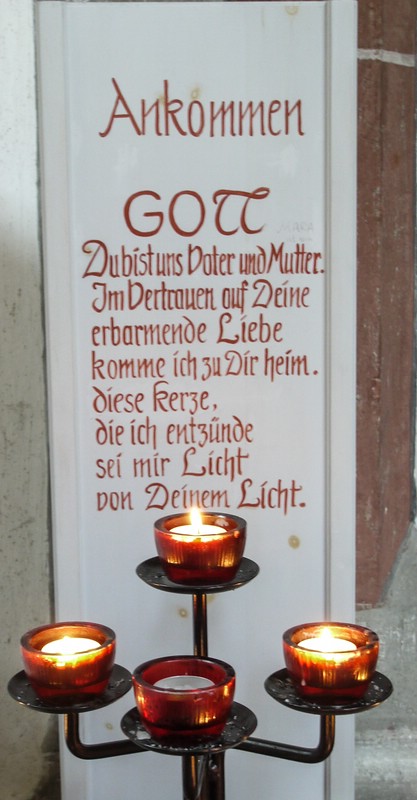 Ankommen
GOTT
Du bist uns Vater und Mutter.
Im Vertrauen auf Deine
erbarmende Liebe
komme ich zu Dir heim.
diese Kerze,
die ich entzünde
sei mir Licht
von Deinem Licht.